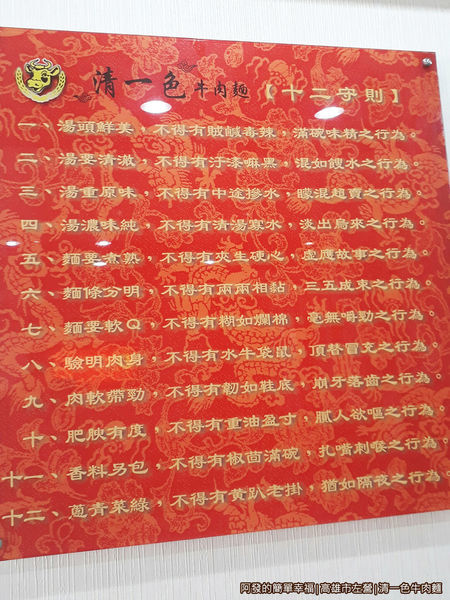 清一色牛肉麵【十二守則】
一、湯頭鮮美，不得有賊鹹毒辣，滿碗味精之行為。
二、湯要清澈，不得有汙漆嘛黑，混如餿水之行為。
三、湯重原味，不得有中途摻水，矇混超賣之行為。
四、湯濃味純，不得有清湯寡水，淡出鳥來之行為。
五、麵要煮熟，不得有夾生硬心，虛應故事之行為。
六、麵條分明，不得有兩兩相黏，三五成束之行為。
七、麵要軟Q，不得有糊如爛棉，毫無嚼勁之行為。
八、驗明肉身，不得有水牛袋鼠，頂替冒充之行為。
九、肉軟帶勁，不得有韌如鞋底，崩牙落齒之行為。
十、肥腴有度，不得有重油盈寸，膩人欲嘔之行為。
十一、香料另包，不得有椒茴滿碗，扎嘴刺喉之行為。
十二、蔥青菜綠，不得有黃趴老掛，猶如隔夜之行為。
阿發的簡單幸福|高雄市左營|清一色牛肉麵